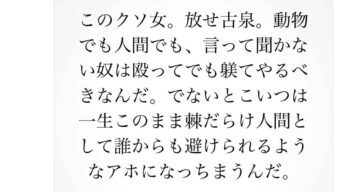 このクソ女。放せ古泉。動物
でも人間でも、言って聞かな
い奴は殴ってでも躾てやるべ
きなんだ。でないとこいつは
一生このまま棘だらけ人間と
して誰からも避けられるよう
なアホになっちまうんだ。